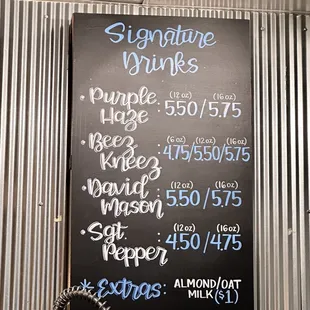 Signature
Drinks
(12 oz) (16 oz)
• Purple Haze : 5.50/5.75
(6 oz) (12 oz) (16 oz)
• Beez Kneez : 4.75/5.50/5.75
(12 oz) (16 oz)
• David Mason : 5.50/5.75
(12 oz) (16 oz)
• Sgt. Pepper : 4.50/4.75
* Extras: ALMOND/OAT
MILK ($1)